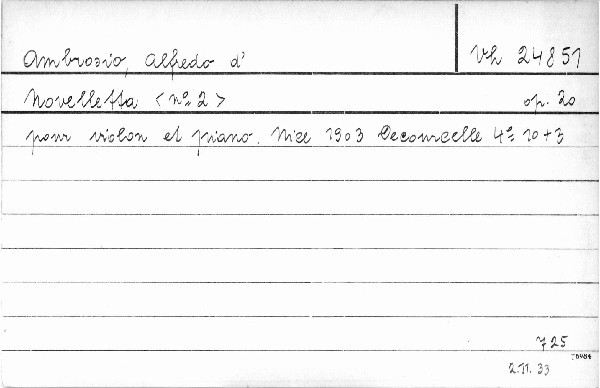 Ambrosio, Alfredo d' Vh 24851
Novelletta <no 2> op. 20
pour violon et piano. Nice 1903 Decourcelle 4o 10+3
725
2.11.33